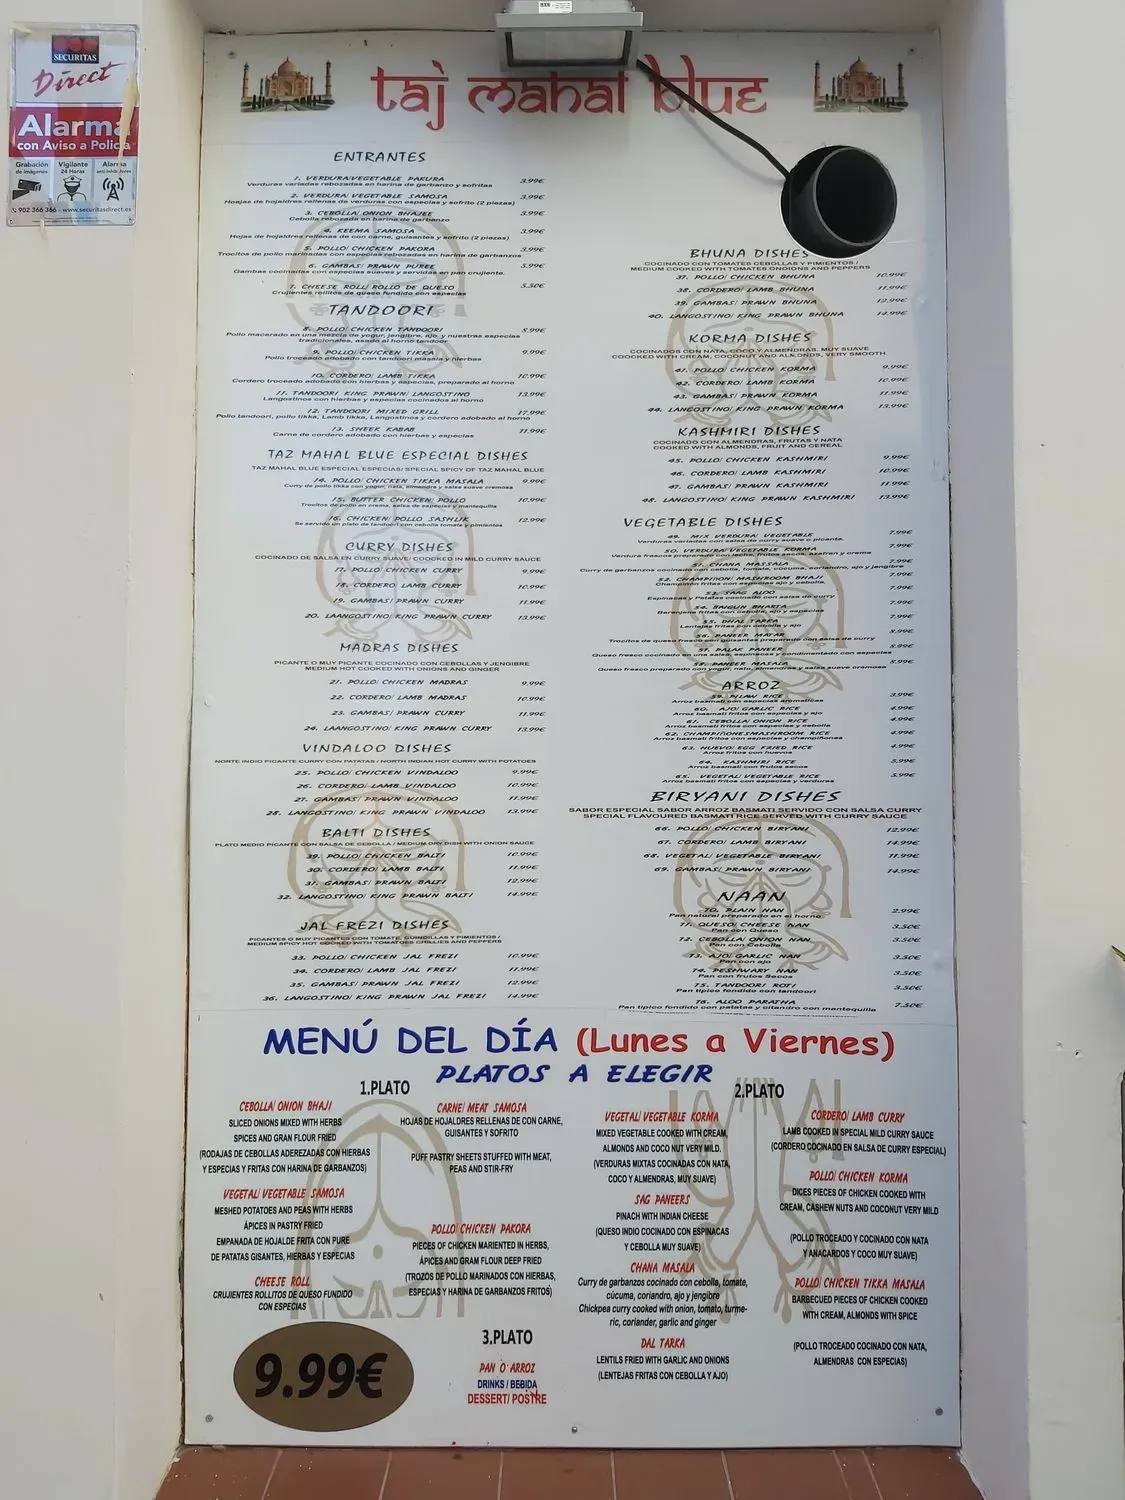 SECURITAS
Direct
Alarma
con Aviso a Policía
Grabación de imágenes
Vigilante 24 Horas
Alarma anti-inhibidores
902 366 366 - www.securitasdirect.es
taj mahal blue
ENTRANTES
1. VERDURA/VEGETABLE PAKURA 3.99€
Verduras variadas rebozadas en harina de garbanzo y sofritas
2. VERDURA/ VEGETABLE SAMOSA 3.99€
Hoajas de hojaldres rellenas de verduras con especias y sofrito (2 piezas)
3. CEBOLLA/ ONION BHAJEE 3.99€
Cebolla rebozada en harina de garbanzo
4. KEEMA SAMOSA 3.99€
Hojas de hojaldres rellenas de con carne, guisantes y sofrito (2 piezas)
5. POLLO/ CHICKEN PAKORA 3.99€
Trocitos de pollo marinadas con especias rebozadas en harina de garbanzos
6. GAMBAS/ PRAWN PUREE 5.99€
Gambas cocinadas con especias suaves y servidas en pan crujiente.
7. CHEESE ROLL/ ROLLO DE QUESO 5.50€
Crujientes rollitos de queso fundido con especias
TANDOORI
8. POLLO/ CHICKEN TANDOORI 8.99€
Pollo macerado en una mezcla de yogur, jengibre, ajo, y nuestras especias
tradicionales, asado al horno tandoor
9. POLLO/ CHICKEN TIKKA 9.99€
Pollo troceado adobado con tandoori masala y hierbas
10. CORDERO/ LAMB TIKKA 10.99€
Cordero troceado adobado con hierbas y especias, preparado al horno
11. TANDOORI KING PRAWN/ LANGOSTINO 13.99€
Langostinos con hierbas y especias cocinados al horno
12. TANDOORI MIXED GRILL 17.99€
Pollo tandoori, pollo tikka, Lamb tikka, Langostinos y cordero adobado al horno
13. SHEEK KABAB 11.99€
Carne de cordero adobado con hierbas y especias
TAZ MAHAL BLUE ESPECIAL DISHES
TAZ MAHAL BLUE ESPECIAL ESPECIAS/ SPECIAL SPICY OF TAZ MAHAL BLUE
14. POLLO/ CHICKEN TIKKA MASALA 9.99€
Curry de pollo tikka con yogur, nata, almendra y salsa suave cremosa
15. BUTTER CHICKEN/ POLLO 10.99€
Trocitos de pollo en crema, salsa de especias y mantequilla
16. CHICKEN/ POLLO SASHLIK 12.99€
Se servido un plato de tandoori con cebolla tomate y pimientos
CURRY DISHES
COCINADO DE SALSA EN CURRY SUAVE/ COOCKED IN MILD CURRY SAUCE
17. POLLO/ CHICKEN CURRY 9.99€
18. CORDERO/ LAMB CURRY 10.99€
19. GAMBAS/ PRAWN CURRY 11.99€
20. LAANGOSTINO/ KING PRAWN CURRY 13.99€
MADRAS DISHES
PICANTE O MUY PICANTE COCINADO CON CEBOLLAS Y JENGIBRE
MEDIUM HOT COOKED WITH ONIONS AND GINGER
21. POLLO/ CHICKEN MADRAS 9.99€
22. CORDERO/ LAMB MADRAS 10.99€
23. GAMBAS/ PRAWN CURRY 11.99€
24. LAANGOSTINO/ KING PRAWN CURRY 13.99€
VINDALOO DISHES
NORTE INDIO PICANTE CURRY CON PATATAS / NORTH INDIAN HOT CURRY WITH POTATOES
25. POLLO/ CHICKEN VINDALOO 9.99€
26. CORDERO/ LAMB VINDALOO 10.99€
27. GAMBAS/ PRAWN VINDALOO 11.99€
28. LANGOSTINO/ KING PRAWN VINDALOO 13.99€
BALTI DISHES
PLATO MEDIO PICANTE CON SALSA DE CEBOLLA / MEDIUM DRY DISH WITH ONION SAUCE
39. POLLO/ CHICKEN BALTI 10.99€
30. CORDERO/ LAMB BALTI 11.99€
31. GAMBAS/ PRAWN BALTI 12.99€
32. LANGOSTINO/ KING PRAWN BALTI 14.99€
JAL FREZI DISHES
PICANTES O MUY PICANTES CON TOMATE, GUINDILLAS Y PIMIENTOS /
MEDIUM SPICY HOT COOKED WITH TOMATOES CHILLIES AND PEPPERS
33. POLLO/ CHICKEN JAL FREZI 10.99€
34. CORDERO/ LAMB JAL FREZI 11.99€
35. GAMBAS/ PRAWN JAL FREZI 12.99€
36. LANGOSTINO/ KING PRAWN JAL FREZI 14.99€
BHUNA DISHES
COCINADO CON TOMATES CEBOLLAS Y PIMIENTOS /
MEDIUM COOKED WITH TOMATES ONOIONS AND PEPPERS
37. POLLO/ CHICKEN BHUNA 10.99€
38. CORDERO/ LAMB BHUNA 11.99€
39. GAMBAS/ PRAWN BHUNA 12.99€
40. LANGOSTINO/ KING PRAWN BHUNA 14.99€
KORMA DISHES
COCINADOS CON NATA, COCO Y ALMENDRAS. MUY SUAVE
COOCKED WITH CREAM, COCONUT AND ALMONDS, VERY SMOOTH
41. POLLO/ CHICKEN KORMA 9.99€
42. CORDERO/ LAMB KORMA 10.99€
43. GAMBAS/ PRAWN KORMA 11.99€
44. LANGOSTINO/ KING PRAWN KORMA 13.99€
KASHMIRI DISHES
COCINADO CON ALMENDRAS, FRUTAS Y NATA
COOKED WITH ALMONDS, FRUIT AND CEREAL
45. POLLO/ CHICKEN KASHMIRI 9.99€
46. CORDERO/ LAMB KASHMIRI 10.99€
47. GAMBAS/ PRAWN KASHMIRI 11.99€
48. LANGOSTINO/ KING PRAWN KASHMIRI 13.99€
VEGETABLE DISHES
49. MIX VERDURA/ VEGETABLE 7.99€
Verduras variadas con salsa de curry suave o picante.
50. VERDURA/ VEGETABLE KORMA 7.99€
Verdura frescas preparado con leche, frutos secos, azafran y crema
51. CHANA MASSALA 7.99€
Curry de garbanzos cocinado con cebolla, tomate, cúcuma, coriandro, ajo y jengibre
52. CHAMPIÑON/ MASHROOM BHAJI 7.99€
Champiñon fritas con especias ajo y cebolla.
53. SAAG ALOO 7.99€
Espinacas y Patatas cocinado con salsa de curry
54. BAIGUN BHARTA 7.99€
Baranjena fritas con cebolla, ajo y especias
55. DHAL TARKA 7.99€
Lentejas fritas con cebolla y ajo
56. PANEER MATAR 8.99€
Trocitos de queso fresco con guisantes preparado con salsa de curry
57. PALAK PANEER 8.99€
Queso fresco cocinado en una salsa, espinacas y condimentado con especias
58. PANEER MASALA 8.99€
Queso fresco preparado con yogur, nata, almendras y salsa suave cremosa
ARROZ
59. PILAW RICE 3.99€
Arroz basmati con especias aromaticas
60. AJO/ GARLIC RICE 4.99€
Arroz basmati fritos con especias y ajo
61. CEBOLLA/ ONION RICE 4.99€
Arroz basmati fritos con especias y cebolla
62. CHAMPIÑONES/MASHROOM RICE 4.99€
Arroz basmati fritos con especias y champiñones
63. HUEVO/ EGG FRIED RICE 4.99€
Arroz fritos con huevos
64. KASHMIRI RICE 5.99€
Arroz basmati con frutos secos
65. VEGETAL/ VEGETABLE RICE 5.99€
Arroz basmati fritos con especias y verduras
BIRYANI DISHES
SABOR ESPECIAL SABOR ARROZ BASMATI SERVIDO CON SALSA CURRY
SPECIAL FLAVOURED BASMATI RICE SERVED WITH CURRY SAUCE
66. POLLO/ CHICKEN BIRYANI 12.99€
67. CORDERO/ LAMB BIRYANI 14.99€
68. VEGETAL/ VEGETABLE BIRYANI 11.99€
69. GAMBAS/ PRAWN BIRYANI 14.99€
NAAN
70. PLAIN NAN 2.99€
Pan natural preparado en el horno
71. QUESO/ CHEESE NAN 3.50€
Pan con Queso
72. CEBOLLA/ ONION NAN 3.50€
Pan con Cebolla
73. AJO/ GARLIC NAN 3.50€
Pan con ajo
74. PESHWARY NAN 3.50€
Pan con frutos Secos
75. TANDOORI ROTI 3.50€
Pan tipico fondido con tandoori
76. ALOO PARATHA 7.50€
Pan tipico fondido con patatas y cilantro con mantequilla
MENÚ DEL DÍA (Lunes a Viernes)
PLATOS A ELEGIR
1.PLATO
CEBOLLA/ ONION BHAJI
SLICED ONIONS MIXED WITH HERBS
SPICES AND GRAN FLOUR FRIED
(RODAJAS DE CEBOLLAS ADEREZADAS CON HIERBAS
Y ESPECIAS Y FRITAS CON HARINA DE GARBANZOS)
VEGETAL/ VEGETABLE SAMOSA
MESHED POTATOES AND PEAS WITH HERBS
ÁPICES IN PASTRY FRIED
EMPANADA DE HOJALDE FRITA CON PURE
DE PATATAS GISANTES, HIERBAS Y ESPECIAS
CHEESE ROLL
CRUJIENTES ROLLITOS DE QUESO FUNDIDO
CON ESPECIAS
CARNE/ MEAT SAMOSA
HOJAS DE HOJALDRES RELLENAS DE CON CARNE,
GUISANTES Y SOFRITO
PUFF PASTRY SHEETS STUFFED WITH MEAT,
PEAS AND STIR-FRY
POLLO/ CHICKEN PAKORA
PIECES OF CHICKEN MARIENTED IN HERBS,
ÁPICES AND GRAM FLOUR DEEP FRIED
(TROZOS DE POLLO MARINADOS CON HIERBAS,
ESPECIAS Y HARINA DE GARBANZOS FRITOS)
2.PLATO
VEGETAL/ VEGETABLE KORMA
MIXED VEGETABLE COOKED WITH CREAM,
ALMONDS AND COCO NUT VERY MILD.
(VERDURAS MIXTAS COCINADAS CON NATA,
COCO Y ALMENDRAS, MUY SUAVE)
SAG PANEERS
PINACH WITH INDIAN CHEESE
(QUESO INDIO COCINADO CON ESPINACAS
Y CEBOLLA MUY SUAVE)
CHANA MASALA
Curry de garbanzos cocinado con cebolla, tomate,
cúcuma, coriandro, ajo y jengibre
Chickpea curry cooked with onion, tomato, turme-
ric, coriander, garlic and ginger
DAL TARKA
LENTILS FRIED WITH GARLIC AND ONIONS
(LENTEJAS FRITAS CON CEBOLLA Y AJO)
CORDERO/ LAMB CURRY
LAMB COOKED IN SPECIAL MILD CURRY SAUCE
(CORDERO COCINADO EN SALSA DE CURRY ESPECIAL)
POLLO/ CHICKEN KORMA
DICES PIECES OF CHICKEN COOKED WITH
CREAM, CASHEW NUTS AND COCONUT VERY MILD
(POLLO TROCEADO Y COCINADO CON NATA
Y ANACARDOS Y COCO MUY SUAVE)
POLLO/ CHICKEN TIKKA MASALA
BARBECUED PIECES OF CHICKEN COOKED
WITH CREAM, ALMONDS WITH SPICE
(POLLO TROCEADO COCINADO CON NATA,
ALMENDRAS CON ESPECIAS)
3.PLATO
PAN O ARROZ
DRINKS / BEBIDA
DESSERT/ POSTRE
9.99€